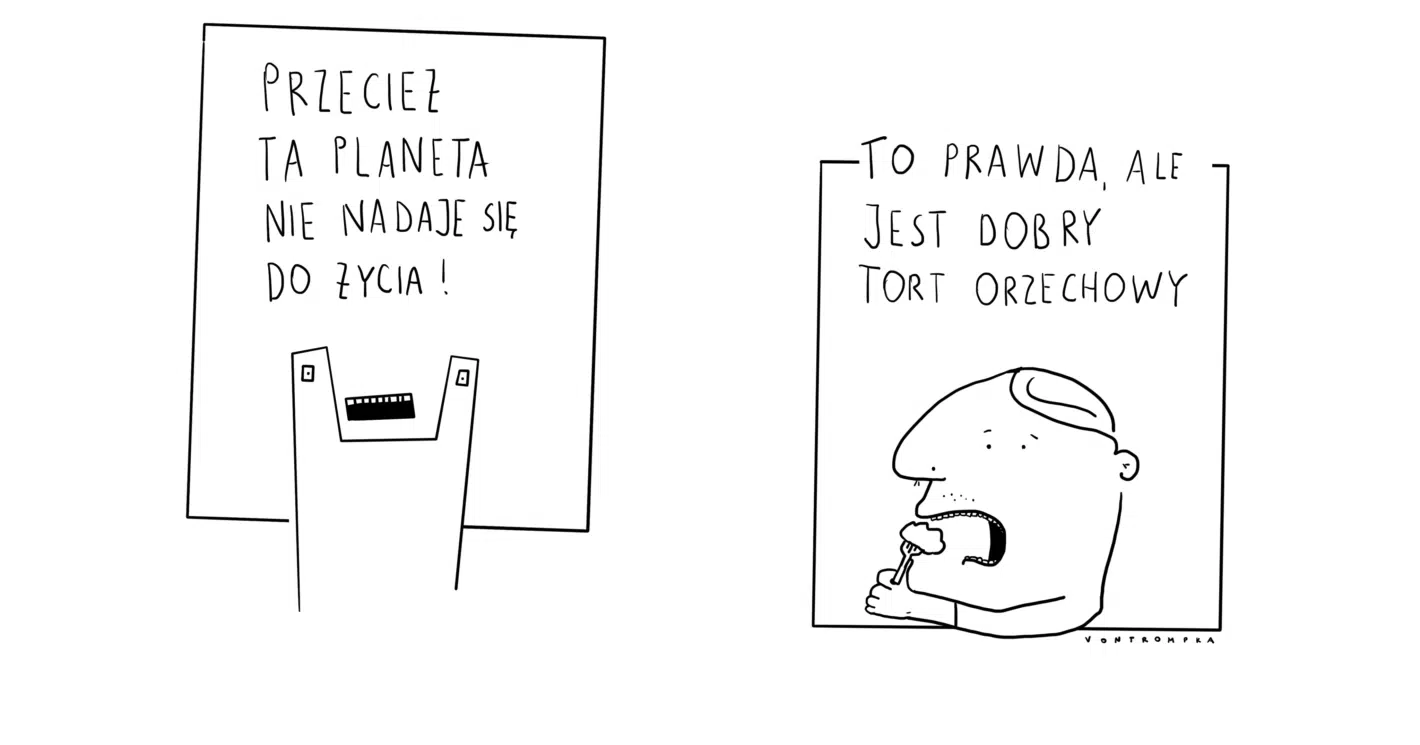 PRZECIEŻ
TA PLANETA
NIE NADAJE SIĘ
DO ŻYCIA!
TO PRAWDA, ALE
JEST DOBRY
TORT ORZECHOWY
VONTROMPKA